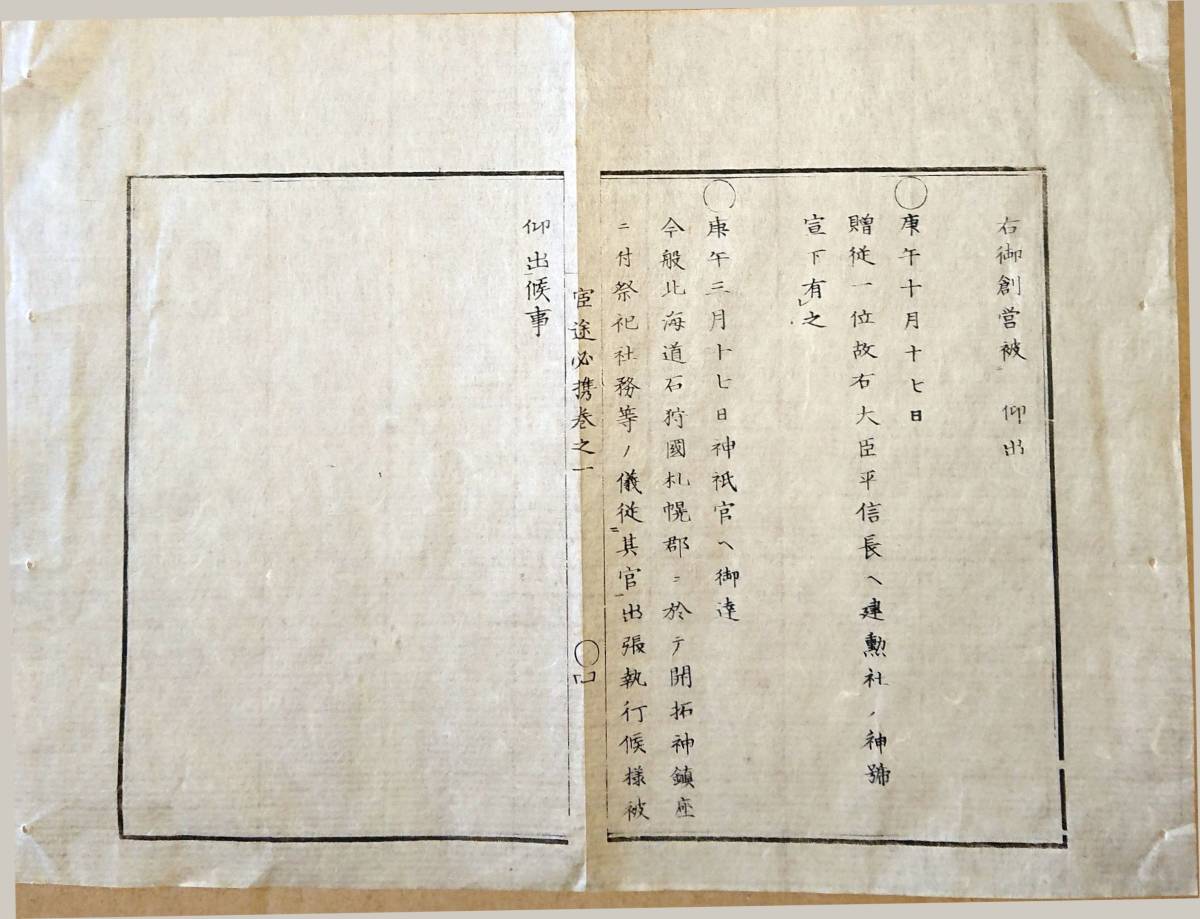 右御創営被　仰出
◯庚午十月十七日
贈従一位故右大臣平信長ヘ建勲社ノ神號
宣下有之
◯庚午三月十七日神祇官ヘ御達
今般北海道石狩國札幌郡ニ於テ開拓神鎮座
ニ付祭祀社務等ノ儀従其官出張執行候様被
宦途必携巻之一　◯
仰出候事